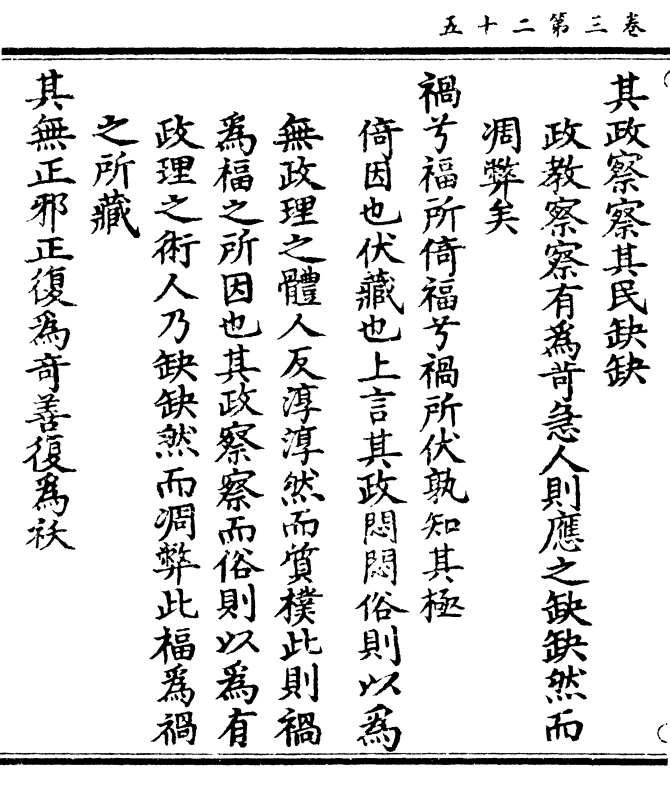 卷三第二十五
其政察察其民缺缺
政教察察有為苛急人則應之缺缺然而
凋弊矣
禍兮福所倚福兮禍所伏孰知其極
倚因也伏藏也上言其政悶悶俗則以為
無政理之體人反淳淳然而質樸此則禍
為福之所因也其政察察而俗則以為有
政理之術人乃缺缺然而凋弊此福為禍
之所藏
其無正邪正復為奇善復為祅